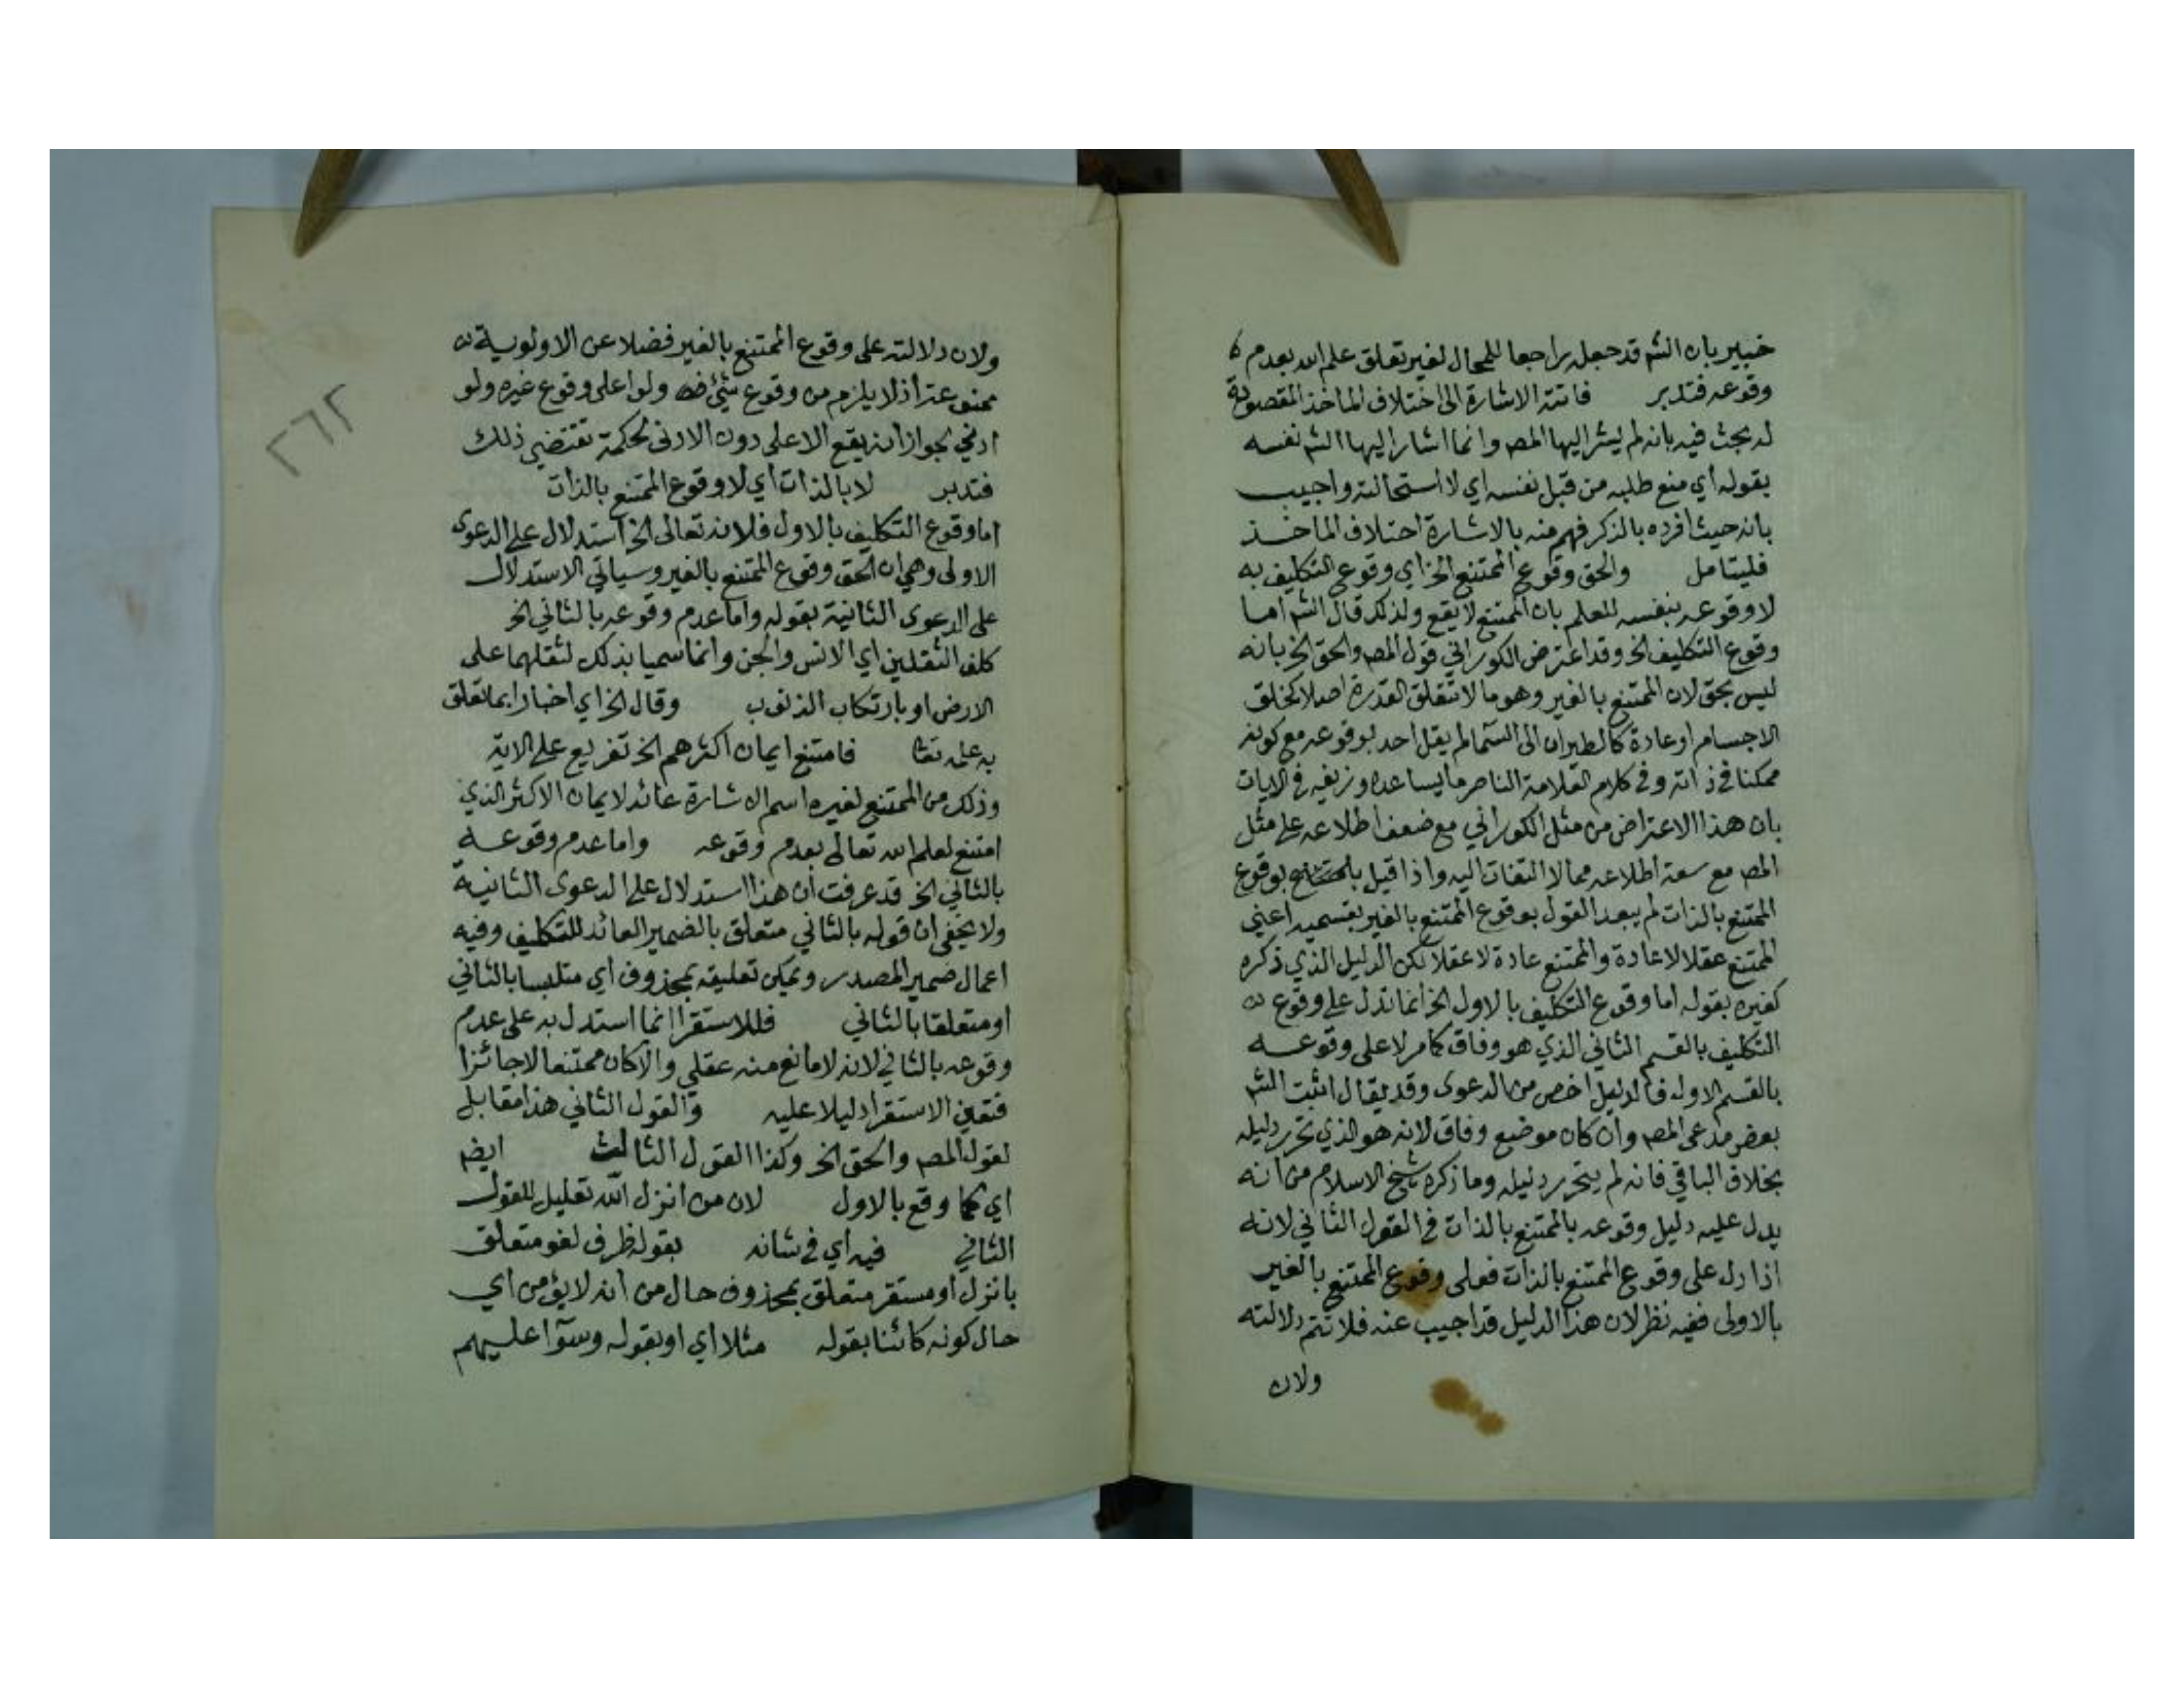 خبير بان الشم قد جعله راجعا للمحال لغير تعلق علم الله بعدم
وقوعه فتدبر فائدته الاشارة الى اختلاف الماخذ المقصودة
له بحث فيه بانه لم يشر اليها المصم وانما اشار اليها الشم نفسه
بقوله أي منع طلبه من قبل نفسه اي لاستحالته واجيب
بانه حيث افرده بالذكر فهم منه بالاشارة اختلاف الماخذ
فليتامل والحق وقوع الممتنع الخ اي وقوع التكليف به
لا وقوعه بنفسه للعلم بان الممتنع لا يقع ولذلك قال الشم اما
وقوع التكليف الخ وقد اعترض الكوراني قول المصم والحق الخ بانه
ليس بحق لان الممتنع بالغير وهو ما لا تتعلق القدرة اصلا كخلق
الاجسام او عادة كالطيران الى السما لم يقل احد بوقوعه مع كونه
ممكنا في ذاته وفي كلام العلامة الناصر ما يساعده وزيفه في الايات
بان هذا الاعتراض من مثل الكوراني مع ضعف اطلاعه على مثل
المصم مع سعة اطلاعه مما لا التفات اليه واذا قيل بوقوع
الممتنع بالذات لم يبعد القول بوقوع الممتنع بالغير بقسميه اعني
الممتنع عقلا لا عادة والممتنع عادة لا عقلا لكن الدليل الذي ذكره
كغيره بقوله اما وقوع التكليف بالاول الخ انما تدل على وقوع
التكليف بالقسم الثاني الذي هو وفاق كما مر لا على وقوعه
بالقسم الاول فالدليل اخص من الدعوى وقد يقال اثبت الشم
بعض مدعى المصم وان كان موضع وفاق لانه هو الذي تحرر دليله
بخلاف الباقي فانه لم يتحرر دليله وما ذكره شيخ الاسلام من انه
يدل عليه دليل وقوعه بالممتنع بالذات في القول الثاني لانه
اذا دل على وقوع الممتنع بالذات فعلى وقوع الممتنع بالغير
بالاولى ففيه نظر لان هذا الدليل قد اجيب عنه فلا تتم دلالته
ولان
ولان دلالته على وقوع الممتنع بالغير فضلا عن الاولوية
ممنوعة اذ لا يلزم من وقوع شيئ ولو اعلى وقوع غيره ولو
ادني لجواز انه يقع الاعلى دون الادنى لحكمة تقتضي ذلك
فتدبر لا بالذات أي لا وقوع الممتنع بالذات
اما وقوع التكليف بالاول فلانه تعالى الخ استدلال على الدعوى
الاولى وهي ان الحق وقوع الممتنع بالغير وسياتي الاستدلال
على الدعوى الثانية بقوله واما عدم وقوعه بالثاني الخ
كلف الثقلين اي الانس والجن وانما سميا بذلك لثقلهما على
الارض او بارتكاب الذنوب وقال الخ اي اخبارا بما تعلق
به علمه تعا فامتنع ايمان اكثرهم الخ تفريع على الاية
وذلك من الممتنع لغيره اسم الاشارة عائد لايمان الاكثر الذي
امتنع لعلم الله تعالى بعدم وقوعه واما عدم وقوعه
بالثاني الخ قد عرفت ان هذا استدلال على الدعوى الثانية
ولا يخفى ان قوله بالثاني متعلق بالضمير العائد للتكليف وفيه
اعمال ضمير المصدر ويمكن تعليقه بمحذوف أي متلبسا بالثاني
او متعلقا بالثاني فللاستقرا انما استدل به على عدم
وقوعه بالثاني لانه لا مانع منه عقلي والا كان ممتنعا لا جائزا
فتعين الاستقرا دليلا عليه والقول الثاني هذا مقابل
لقول المصم والحق الخ وكذا القول الثالث ايضم
اي كما وقع بالاول لان من انزل الله تعليل للقول
الثاني فيه أي في شانه بقوله ظرف لغو متعلق
بانزل او مستقر متعلق بمحذوف حال من انه لا يؤمن اي
حال كونه كائنا بقوله مثلا اي او بقوله وسوآ عليهم
٢٦٢